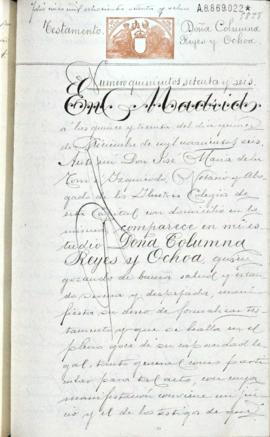 A8869022*
Testamento.
Doña Columna
Reyes y Ochoa
Número quinientos setenta y seis.
En Madrid,
a las quince y treinta del día quince
de Diciembre de mil novecientos seis,
Ante mí Don José María de la
Torre é Izquierdo, Notario y Abo-
gado de los Ilustres Colegios de
esta Capital con domicilio en la
misma comparece en mi es-
tudio Doña Columna
Reyes y Ochoa quien
gozando de buena salud y estan-
do serena y despejada, mani-
fiesta su deseo de formalizar tes-
tamento y que se halla en el
pleno goce de su capacidad le-
gal, tanto general como particu-
lar para tal acto, con cuya
manifestación conviene mi jui-
cio y el de los testigos de que